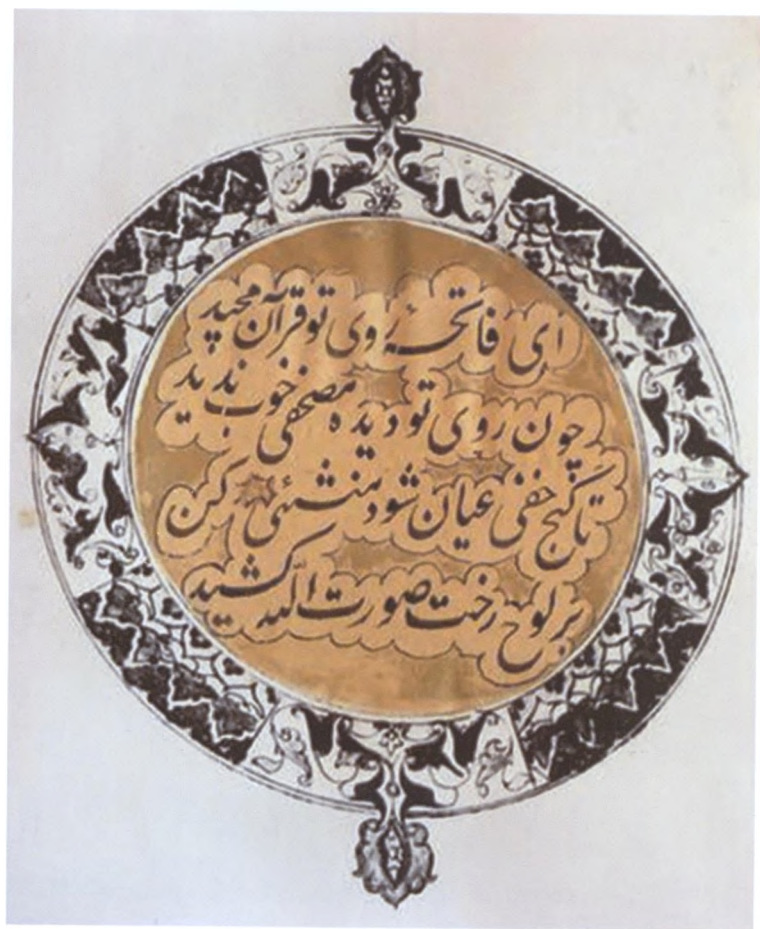 ای فاتحۀ روی تو قرآن مجید
چون روی تو دیده مصحفی خوب ندید
تا گنج خفی عیان شود منشئی کن
بر لوح رخت صورت الله کشید